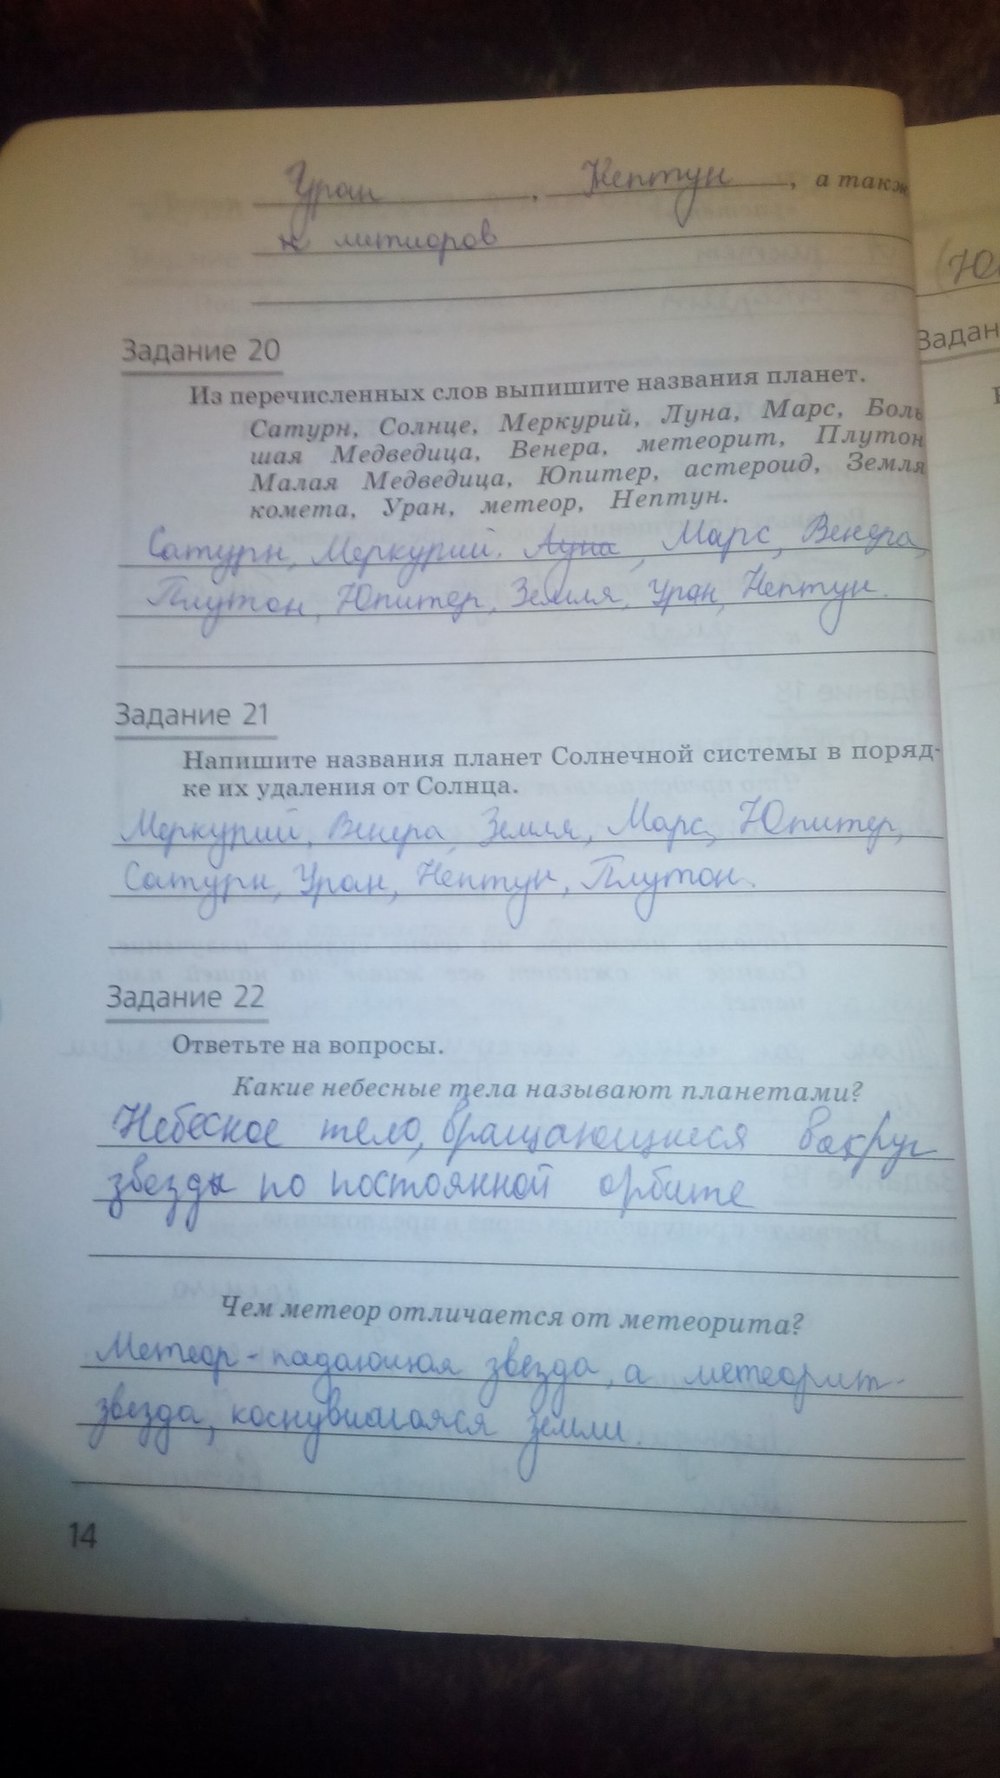 Уран, Нептун, а такж
метиоров
(Ю
Задание 20
Задан
Из перечисленных слов выпишите названия планет.
Сатурн, Солнце, Меркурий, Луна, Марс, Боль
шая Медведица, Венера, метеорит, Плутон
Малая Медведица, Юпитер, астероид, Земля
комета, Уран, метеор, Нептун.
Сатурн, Меркурий, Луна, Марс, Венера,
Плутон, Юпитер, Земля, Уран, Нептун.
Задание 21
Напишите названия планет Солнечной системы в поряд-
ке их удаления от Солнца.
Меркурий, Венера, Земля, Марс, Юпитер,
Сатурн, Уран, Нептун, Плутон.
Задание 22
Ответьте на вопросы.
Какие небесные тела называют планетами?
Небесное тело, вращающиеся вокруг
звезды по постоянной орбите
Чем метеор отличается от метеорита?
Метеор - падающая звезда, а метеорит-
звезда, коснувшагаяся земли.
14